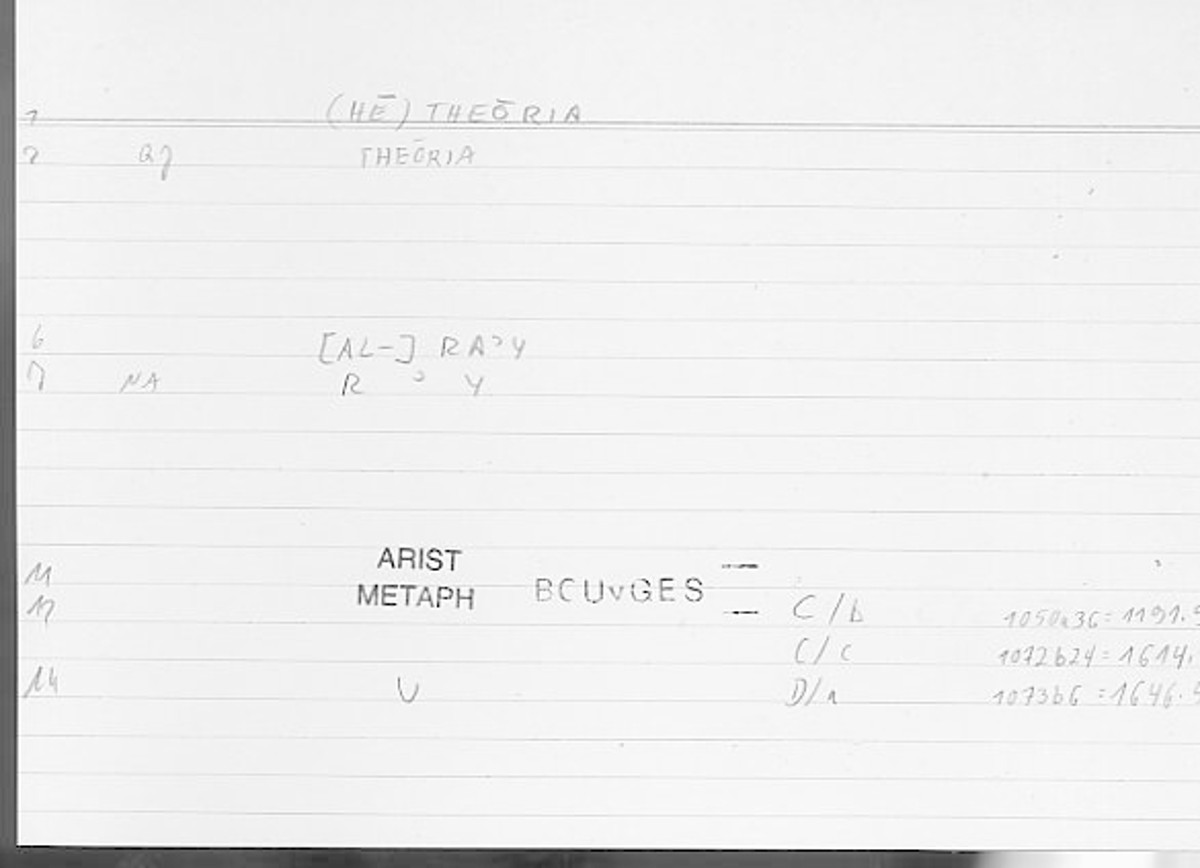 1 (HĒ) THEŌRIA
2 THEŌRIA
6 [AL-] RAʾY
7 NA R ʾ Y
11 ARIST
12 METAPH BCUvGES — C/b 1050a36=1191.
C/c 1072b24=1614.
14 U D/a 1073b6=1646.